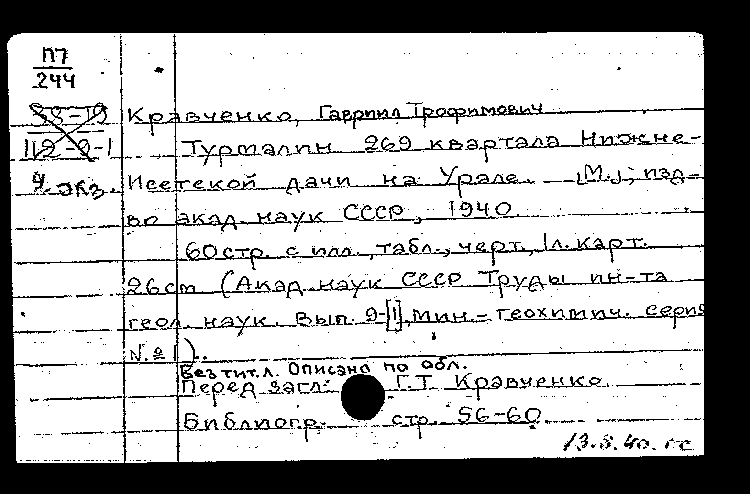 П7
244
38-19
112-2-1
4 экз.
Кравченко, Гавриил Трофимович
Турмалин 269 квартала Нижне-
Исетской дачи на Урале. [М.], изд-
во акад. наук СССР, 1940.
60стр. с илл., табл., черт., 1л. карт.
26см (Акад. наук СССР Труды ин-та
геол. наук. Вып. 9-[1], мин.-геохимич. серия
№21)..
Без тит. л. Описано по обл.
Перед загл: Г.Т. Кравченко.
Библиогр. стр. 56-60.